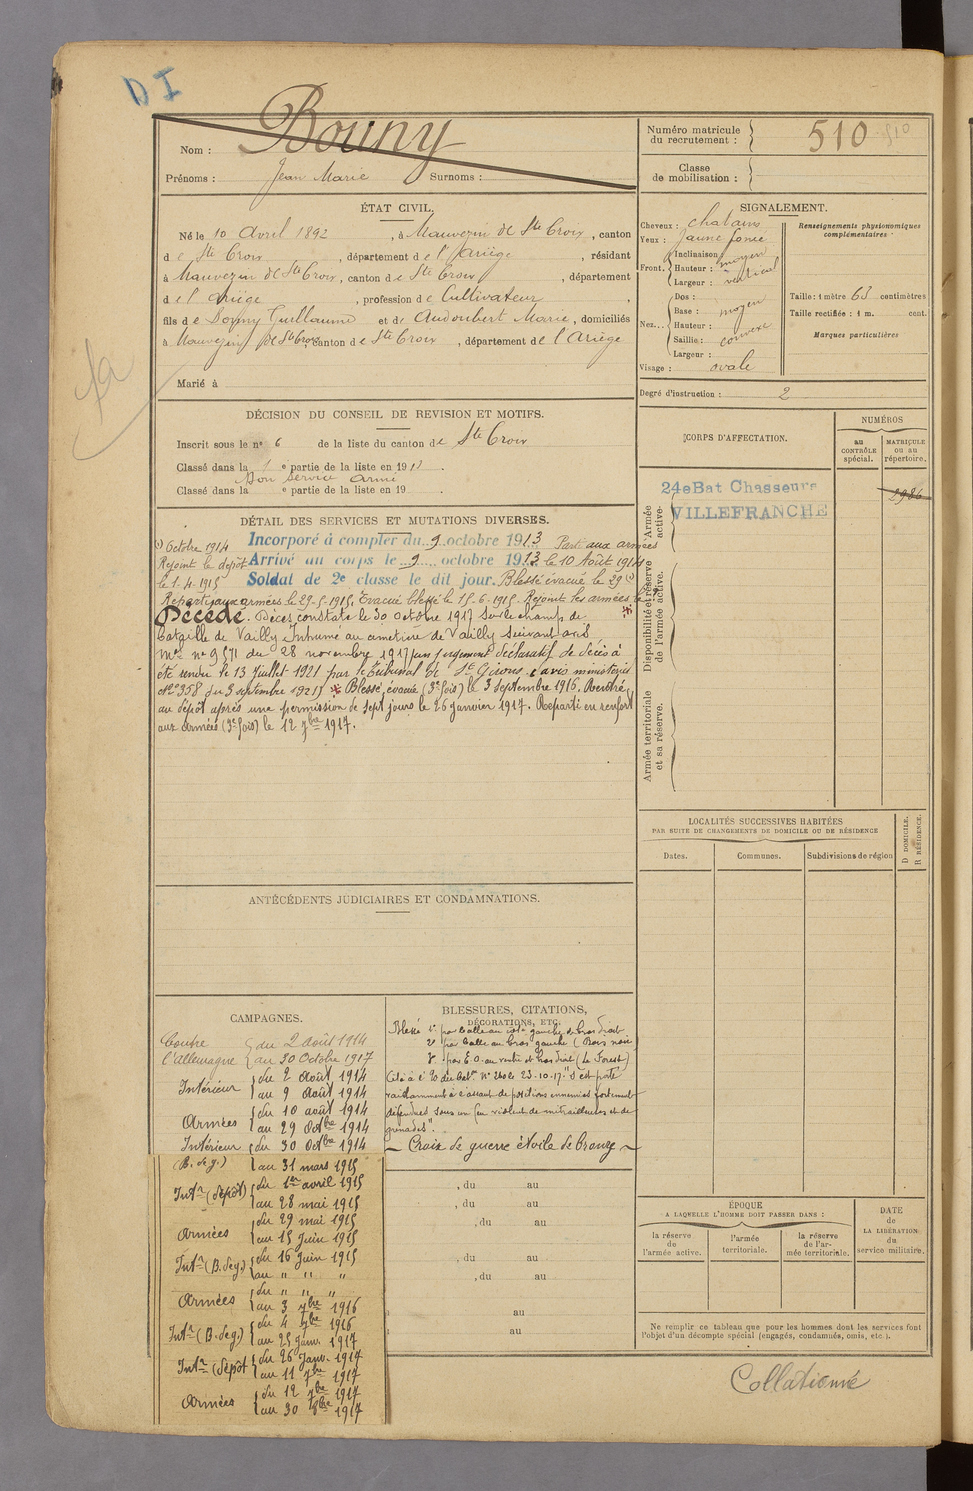 D I
Nom : Bouny
Prénoms : Jean Marie Surnoms :
Numéro matricule
du recrutement : 510
510
Classe
de mobilisation :
ÉTAT CIVIL.
Né le 10 Avril 1892, à Mauvezin de Ste Croix, canton
de Ste Croix, département de l'Ariège, résidant
à Mauvezin de Ste Croix, canton de Ste Croix, département
de l'Ariège, profession de Cultivateur,
fils de Bouny Guillaume et de Audoubert Marie, domiciliés
à Mauvezin de Ste Croix, canton de Ste Croix, département de l'Ariège
Marié à
SIGNALEMENT.
Cheveux : chatains
Yeux : jaune foncé
Front. Inclinaison : moyen
Hauteur :
Largeur : vertical
Nez. Dos :
Base : moyen
Hauteur :
Saillie : convexe
Largeur :
Visage : ovale
Renseignements physionomiques
complémentaires
Taille : 1 mètre 63 centimètres
Taille rectifiée : 1 m. cent.
Marques particulières
Degré d'instruction : 2
DÉCISION DU CONSEIL DE REVISION ET MOTIFS.
Inscrit sous le n° 6 de la liste du canton de Ste Croix
Classé dans la 1e partie de la liste en 191
Bon service armé
Classé dans la e partie de la liste en 19 .
CORPS D'AFFECTATION.
NUMÉROS
au
CONTRÔLE
spécial.
MATRICULE
ou au
répertoire.
Armée
active.
24e Bat Chasseurs
VILLEFRANCHE
2986
Disponibilité et réserve
de l'armée active.
Armée territoriale
et sa réserve.
DÉTAIL DES SERVICES ET MUTATIONS DIVERSES.
(1) Octobre 1914
Incorporé à compter du 9 octobre 1913 Parti aux armées
Rejoint le dépôt Arrivé au corps le 9 octobre 1913 le 10 Août 1914
le 1.4.1915 Soldat de 2e classe le dit jour. Blessé évacué le 29 (1)
Reparti aux armées le 29-5-1915. Evacué blessé le 15-6-1915. Rejoint les armées le
Décédé. Décès constaté le 30 octobre 1917 sur le champ de
bataille de Vailly Inhumé au cimetière de Vailly suivant avis
Mel n° 9571 du 28 novembre 1917 (un jugement déclaratif de décès a
été rendu le 13 Juillet 1921 par le tribunal de St Girons, avis ministériel
N° 358 du 3 septembre 1921) * Blessé, évacué (3e fois) le 3 Septembre 1916. Rentré
au dépôt après une permission de sept jours le 26 janvier 1917. Reparti en renfort
aux Armées (3e fois) le 12 7bre 1917.
LOCALITÉS SUCCESSIVES HABITÉES
PAR SUITE DE CHANGEMENTS DE DOMICILE OU DE RÉSIDENCE
Dates. Communes. Subdivisions de région
D DOMICILE.
R RÉSIDENCE.
ANTÉCÉDENTS JUDICIAIRES ET CONDAMNATIONS.
CAMPAGNES.
Contre du 2 Août 1914
l'Allemagne au 30 Octobre 1917
Intérieur du 2 Août 1914
au 9 Août 1914
Armées du 10 août 1914
au 29 Octbre 1914
Intérieur du 30 Octbre 1914
(B. de g.) au 31 mars 1915
Intr (dépôt) du 1er avril 1915
au 28 mai 1915
Armées du 29 mai 1915
au 15 Juin 1915
Intr (B. de g.) du 16 Juin 1915
au " " "
Armées du " " "
au 3 7bre 1916
Intr (B. de g.) du 4 7bre 1916
au 25 janv. 1917
Intr (dépôt du 26 Janv. 1917
au 11 7bre 1917
Armées du 12 7bre 1917
au 30 8bre 1917
BLESSURES, CITATIONS,
DÉCORATIONS, ETC.
Blessé 1° par balle au coté gauche et bras droit
2° par balle au bras gauche (Bois noir
3° par E.O. au ventre et bras droit (Le Forest)
Cité à l' n° 240 le 23.10.17. "S'est porté
vaillamment à l'assaut de positions ennemies fortement
défendues sous un feu violent de mitrailleuses et de
grenades".
Croix de guerre étoile de bronze
, du au
, du au
, du au
, du au
, du au
au
au
ÉPOQUE
A LAQUELLE L'HOMME DOIT PASSER DANS :
la réserve
de
l'armée active.
l'armée
territoriale.
la réserve
de l'ar-
mée territoriale.
DATE
de
LA LIBÉRATION
du
service militaire.
Ne remplir ce tableau que pour les hommes dont les services font
l'objet d'un décompte spécial (engagés, condamnés, omis, etc.).
Collationné